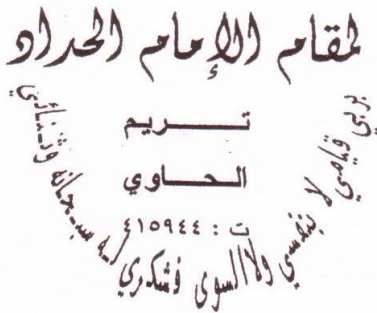 لمقام الإمام الحداد
تريم
الحاوي
ت : ٤١٥٩٤٤
بربي قيامي لا بنفسي ولا السوى فشكري له سبحانه وثنائي